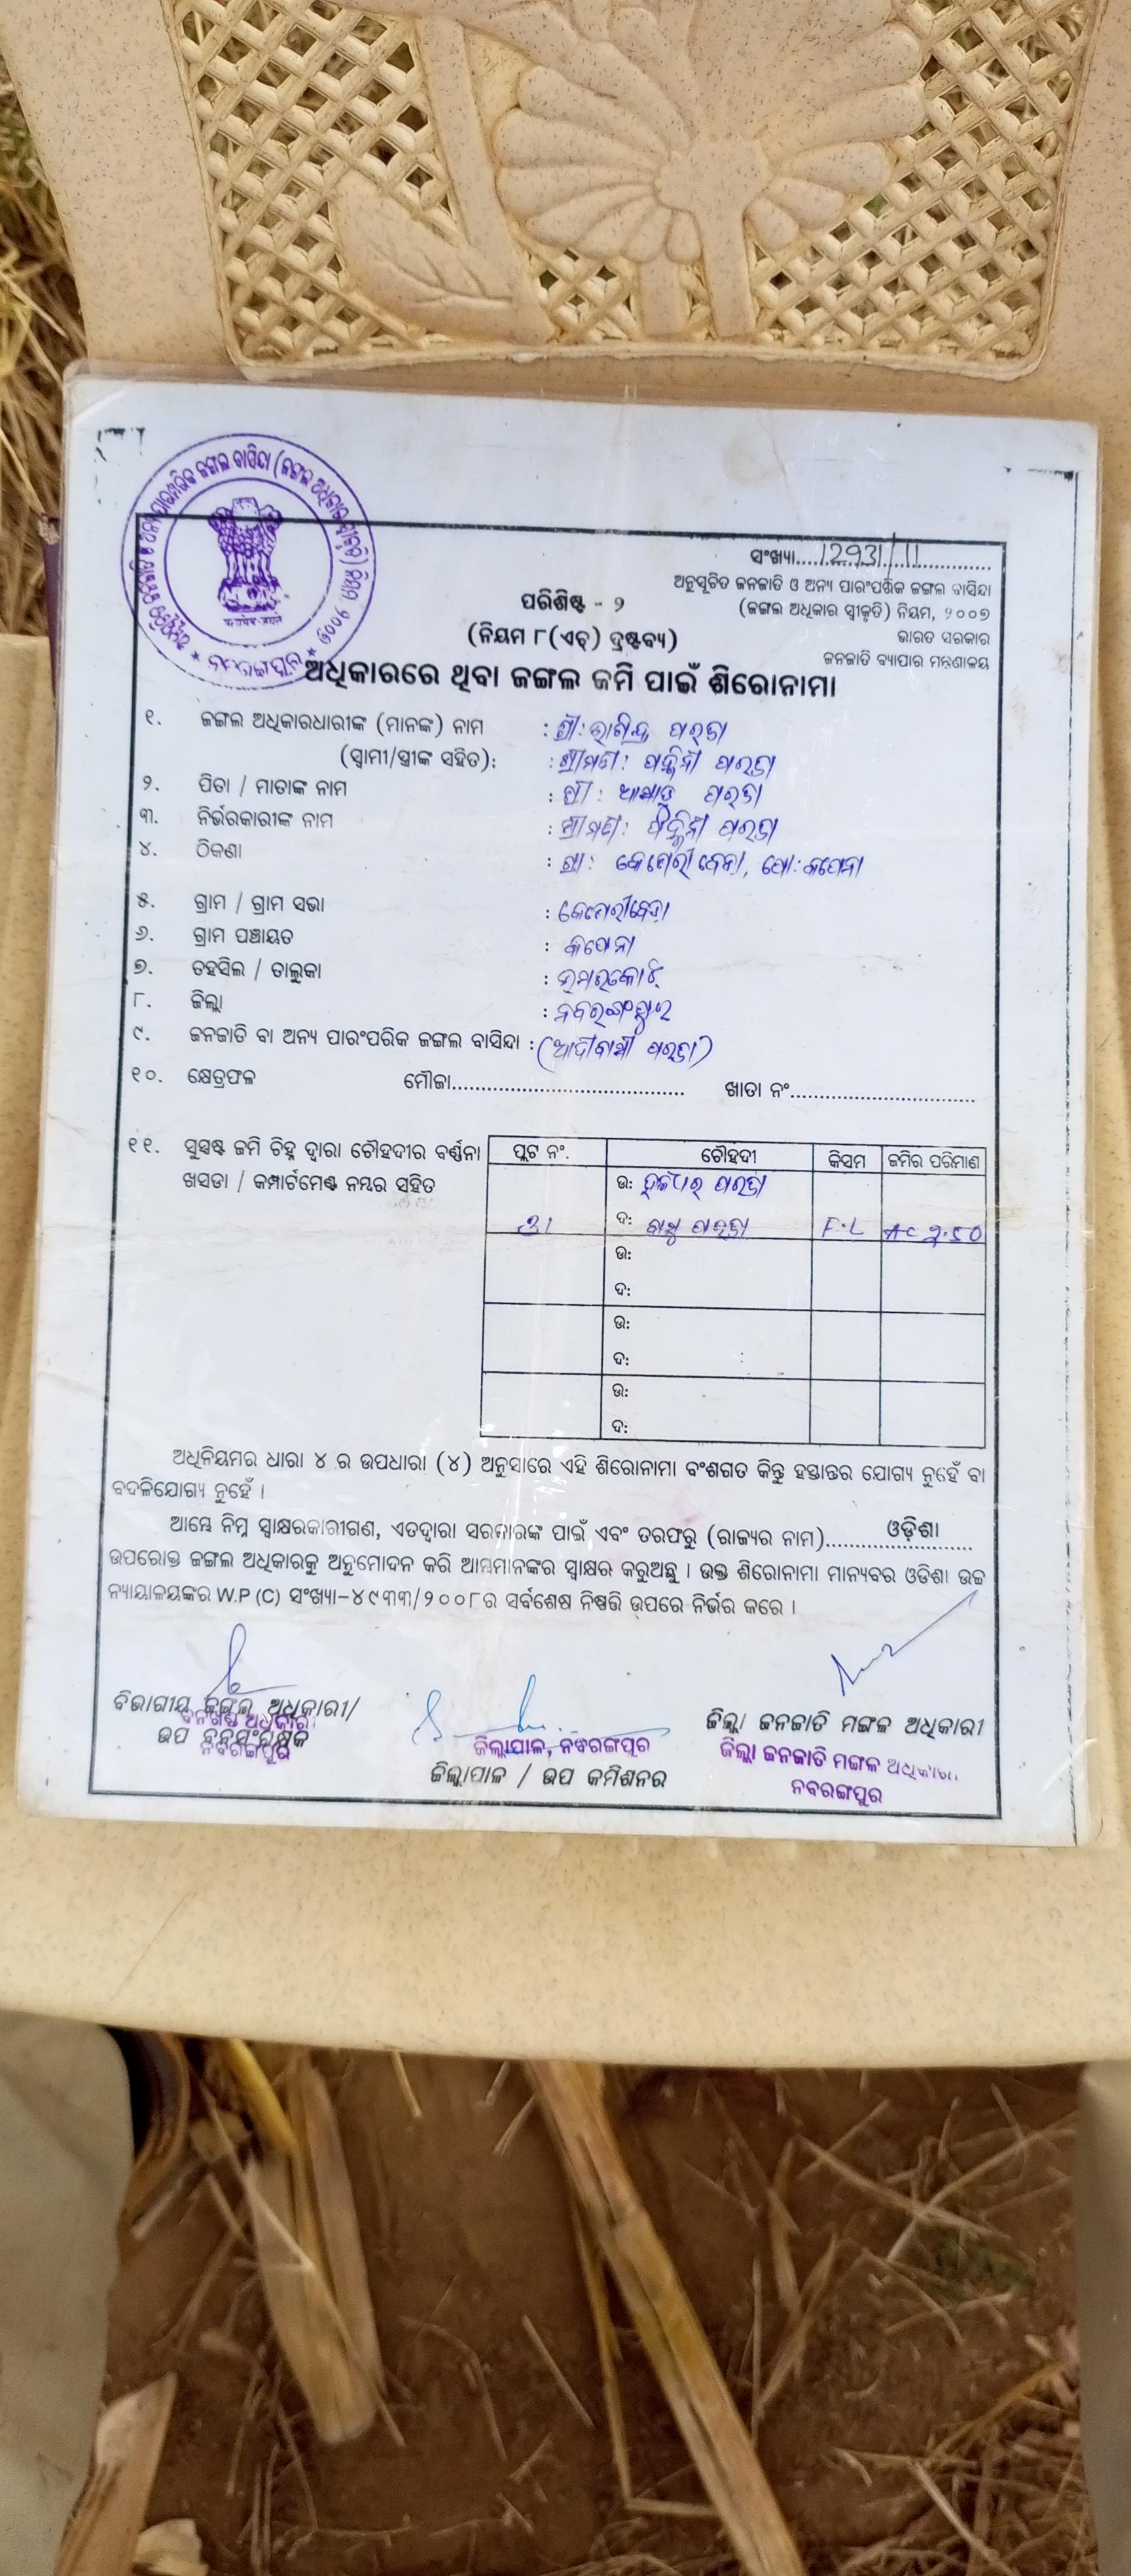 ସଂଖ୍ୟା....12931/11
ଅନୁସୂଚିତ ଜନଜାତି ଓ ଅନ୍ୟ ପାରଂପରିକ ଜଙ୍ଗଲ ବାସିନ୍ଦା
(ଜଙ୍ଗଲ ଅଧିକାର ସ୍ୱୀକୃତି) ନିୟମ, ୨୦୦୭
ଭାରତ ସରକାର
ଜନଜାତି ବ୍ୟାପାର ମନ୍ତ୍ରଣାଳୟ
ପରିଶିଷ୍ଟ - ୨
(ନିୟମ ୮(ଏଚ୍) ଦ୍ରଷ୍ଟବ୍ୟ)
ଅଧିକାରରେ ଥିବା ଜଙ୍ଗଲ ଜମି ପାଇଁ ଶିରୋନାମା
୧. ଜଙ୍ଗଲ ଅଧିକାରଧାରୀଙ୍କ (ମାନଙ୍କ) ନାମ : ଶ୍ରୀ: ପରଜା
(ସ୍ୱାମୀ/ସ୍ତ୍ରୀଙ୍କ ସହିତ): : ଶ୍ରୀମତୀ: ପରଜା
୨. ପିତା / ମାତାଙ୍କ ନାମ : ଶ୍ରୀ: ପରଜା
୩. ନିର୍ଭରକାରୀଙ୍କ ନାମ : ଶ୍ରୀମତୀ: ପରଜା
୪. ଠିକଣା : ଗ୍ରା: କେଶରୀବେଡା, ପୋ: କପେନା
୫. ଗ୍ରାମ / ଗ୍ରାମ ସଭା : କେଶରୀବେଡା
୬. ଗ୍ରାମ ପଞ୍ଚାୟତ : କପେନା
୭. ତହସିଲ / ତାଲୁକା : ଉମରକୋଟ
୮. ଜିଲ୍ଲା : ନବରଙ୍ଗପୁର
୯. ଜନଜାତି ବା ଅନ୍ୟ ପାରଂପରିକ ଜଙ୍ଗଲ ବାସିନ୍ଦା : (ଆଦୀବାସୀ ପରଜା)
୧୦. କ୍ଷେତ୍ରଫଳ ମୌଜା........................................ ଖାତା ନଂ................................
୧୧. ସୁସ୍ପଷ୍ଟ ଜମି ଚିହ୍ନ ଦ୍ୱାରା ଚୌହଦୀର ବର୍ଣ୍ଣନା
ଖସଡା / କମ୍ପାର୍ଟମେଣ୍ଟ ନମ୍ବର ସହିତ
ପ୍ଲଟ ନଂ. ଚୌହଦୀ କିସମ ଜମିର ପରିମାଣ
ଉ: ପରଜା
ଦ: ପରଜା F.L
ଉ:
ଦ:
ଉ:
ଦ:
ଉ:
ଦ:
ଅଧିନିୟମର ଧାରା ୪ ର ଉପଧାରା (୪) ଅନୁସାରେ ଏହି ଶିରୋନାମା ବଂଶଗତ କିନ୍ତୁ ହସ୍ତାନ୍ତର ଯୋଗ୍ୟ ନୁହେଁ ବା
ବଦଳିଯୋଗ୍ୟ ନୁହେଁ ।
ଆମ୍ଭେ ନିମ୍ନ ସ୍ୱାକ୍ଷରକାରୀଗଣ, ଏତଦ୍ୱାରା ସରକାରଙ୍କ ପାଇଁ ଏବଂ ତରଫରୁ (ରାଜ୍ୟର ନାମ)......ଓଡ଼ିଶା......
ଉପରୋକ୍ତ ଜଙ୍ଗଲ ଅଧିକାରକୁ ଅନୁମୋଦନ କରି ଆମ୍ଭମାନଙ୍କର ସ୍ୱାକ୍ଷର କରୁଅଛୁ । ଉକ୍ତ ଶିରୋନାମା ମାନ୍ୟବର ଓଡିଶା ଉଚ୍ଚ
ନ୍ୟାୟାଳୟଙ୍କର W.P (C) ସଂଖ୍ୟା-୪୯୩୩/୨୦୦୮ର ସର୍ବଶେଷ ନିଷ୍ପତ୍ତି ଉପରେ ନିର୍ଭର କରେ ।
ବିଭାଗୀୟ ଜଙ୍ଗଲ ଅଧିକାରୀ/
ଉପ ବନସଂରକ୍ଷକ
ନବରଙ୍ଗପୁର
ଜିଲ୍ଲାପାଳ, ନବରଙ୍ଗପୁର
ଜିଲ୍ଲାପାଳ / ଉପ କମିଶନର
ଜିଲ୍ଲା ଜନଜାତି ମଙ୍ଗଳ ଅଧିକାରୀ
ଜିଲ୍ଲା ଜନଜାତି ମଙ୍ଗଳ ଅଧିକାରୀ
ନବରଙ୍ଗପୁର